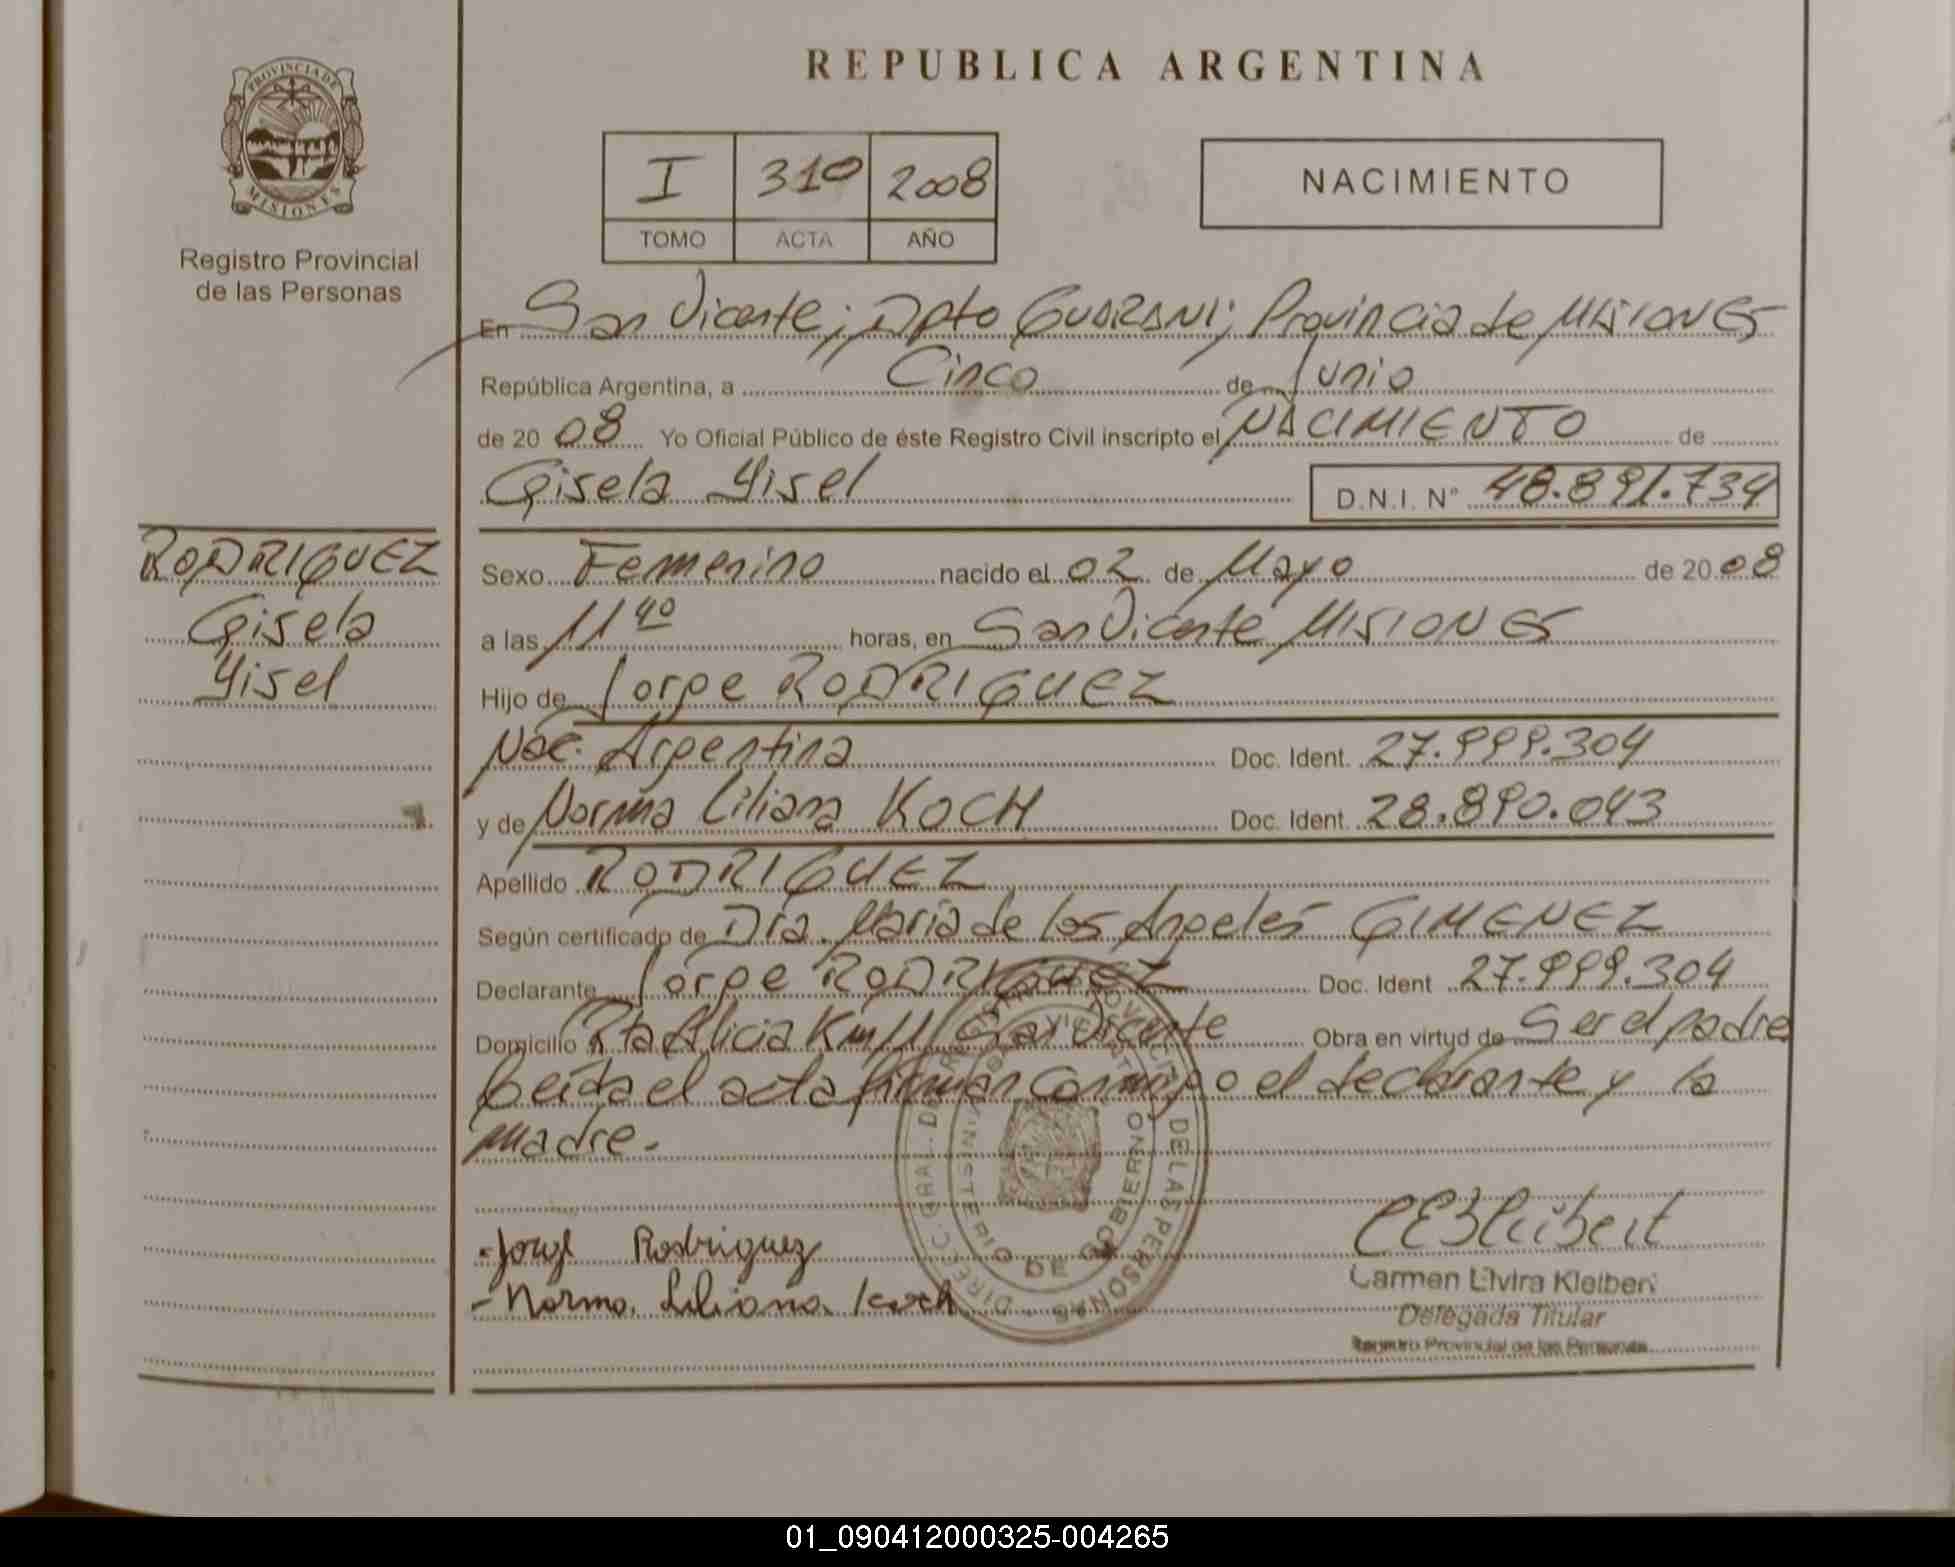 REPUBLICA ARGENTINA
PROVINCIA DE
MISIONES
Registro Provincial
de las Personas
I 310 2008
TOMO ACTA AÑO
NACIMIENTO
En San Vicente; Dpto GUARANI; Provincia de MISIONES
República Argentina, a Cinco de Junio
de 20 08 Yo Oficial Público de éste Registro Civil inscripto el NACIMIENTO de
Gisela Yisel D.N.I. N° 48.891.734
RODRIGUEZ
Gisela
Yisel
Sexo Femenino nacido el 02 de Mayo de 20 08
a las 11 40 horas, en San Vicente MISIONES
Hijo de Jorge RODRIGUEZ
Nac. Argentina Doc. Ident. 27.999.304
y de Norma Liliana KOCH Doc. Ident. 28.890.043
Apellido RODRIGUEZ
Según certificado de Dra. Maria de los Angeles GIMENEZ
Declarante Jorge RODRIGUEZ Doc. Ident 27.999.304
Domicilio Pta Alicia San Vicente Obra en virtud de Ser el padre
Leida el acta firman conmigo el declarante y la
madre.-
DE LAS PERSONAS
MINISTERIO DE GOBIERNO
-Jorge Rodriguez
-Norma Liliana Koch
Carmen Elvira Kleibert
Delegada Titular
Registro Provincial de las Personas
01_090412000325-004265